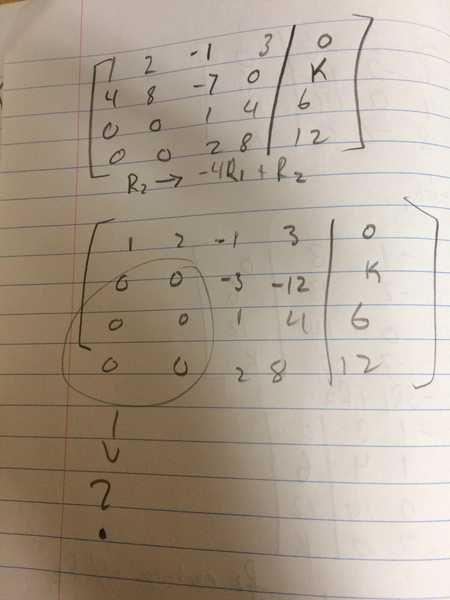 1 2 -1 3 | 0
4 8 -7 0 | K
0 0 1 4 | 6
0 0 2 8 | 12
R2 → -4R1 + R2
1 2 -1 3 | 0
0 0 -3 -12 | K
0 0 1 4 | 6
0 0 2 8 | 12
?